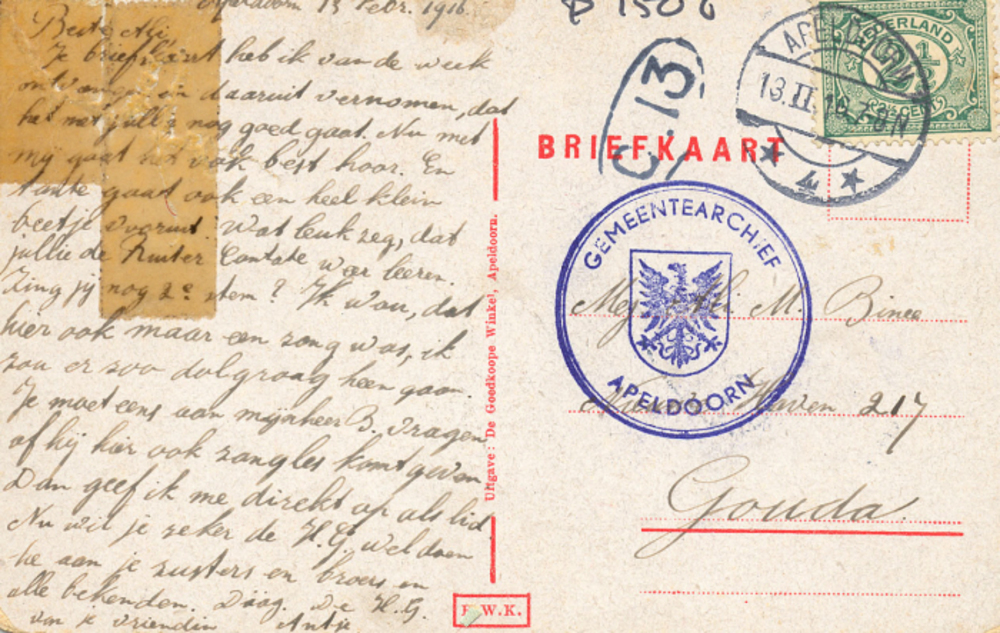 Apeldoorn 13 Febr. 1916
Beste Ali,
Je briefkaart heb ik van de week
ontvangen en daaruit vernomen, dat
het met jullie nog goed gaat. Nu met
my gaat het ook best hoor. En
tante gaat ook een heel klein
beetje vooruit. Wat leuk zeg, dat
jullie de Ruiter Cantate weer leeren.
Zing jy nog 2e stem? Ik wou, dat
hier ook maar een zang was, ik
zou er zoo dolgraag heen gaan.
Je moet eens aan mijnheer B. vragen
of hij hier ook zangles komt geven
Dan geef ik me direkt op als lid
Nu wil je zeker de H.G. wel doen
aan je zusters en broers en
alle bekenden. Daag. De H.G.
van je vriendin Antje
Uitgave: De Goedkoope Winkel, Apeldoorn.
W.K.
B 1506
C. 13
BRIEFKAART
APELDOORN
13.II.16. 7-8N
4
NEDERLAND
1/2
CENT
GEMEENTEARCHIEF
APELDOORN
Mej. Ali. M. Binee
Haven 217
Gouda.